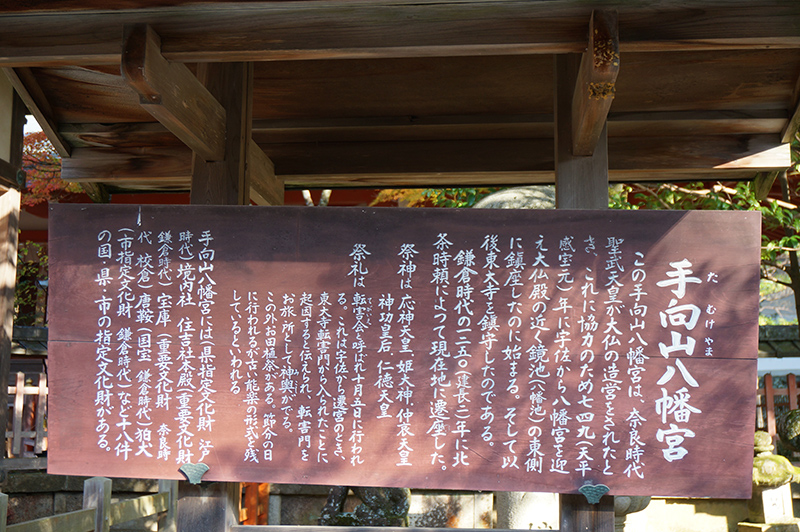 たむけやま
手向山八幡宮
この手向山八幡宮は、奈良時代
聖武天皇が大仏の造営をされたと
き、これに協力のため七四九(天平
感宝元)年に宇佐から八幡宮を迎
え大仏殿の近く鏡池(八幡池)の東側
に鎮座したのに始まる。そして以
後東大寺を鎮守したのである。
鎌倉時代の一二五〇(建長二)年に北
条時頼によつて現在地に遷座した。
祭神は 応神天皇、姫大神、仲哀天皇
神功皇后、仁徳天皇
祭礼は 転害会と呼ばれ十月五日に行われ
る。これは宇佐から遷宮のとき、
東大寺転害門から入られたことに
起因すると伝えられ、転害門を
お旅所として神輿がでる。
この外お田植祭がある。節分の日
に行われるが古い能楽の形式を残
しているといわれる
手向山八幡宮には(県指定文化財 江戸
時代)境内社 住吉社本殿(重要文化財
鎌倉時代)宝庫(重要文化財 奈良時
代 校倉)唐鞍(国宝 鎌倉時代)狛犬
(市指定文化財 鎌倉時代)など十八件
の国、県、市の指定文化財がある。